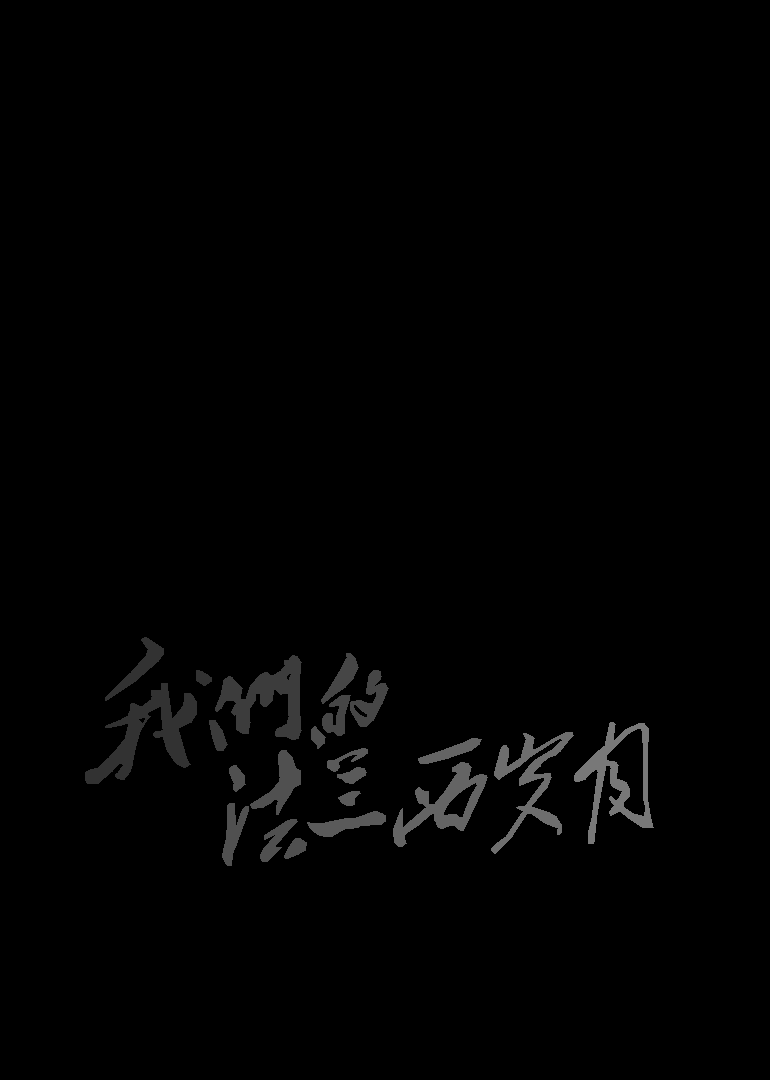 我們的
法兰西岁月